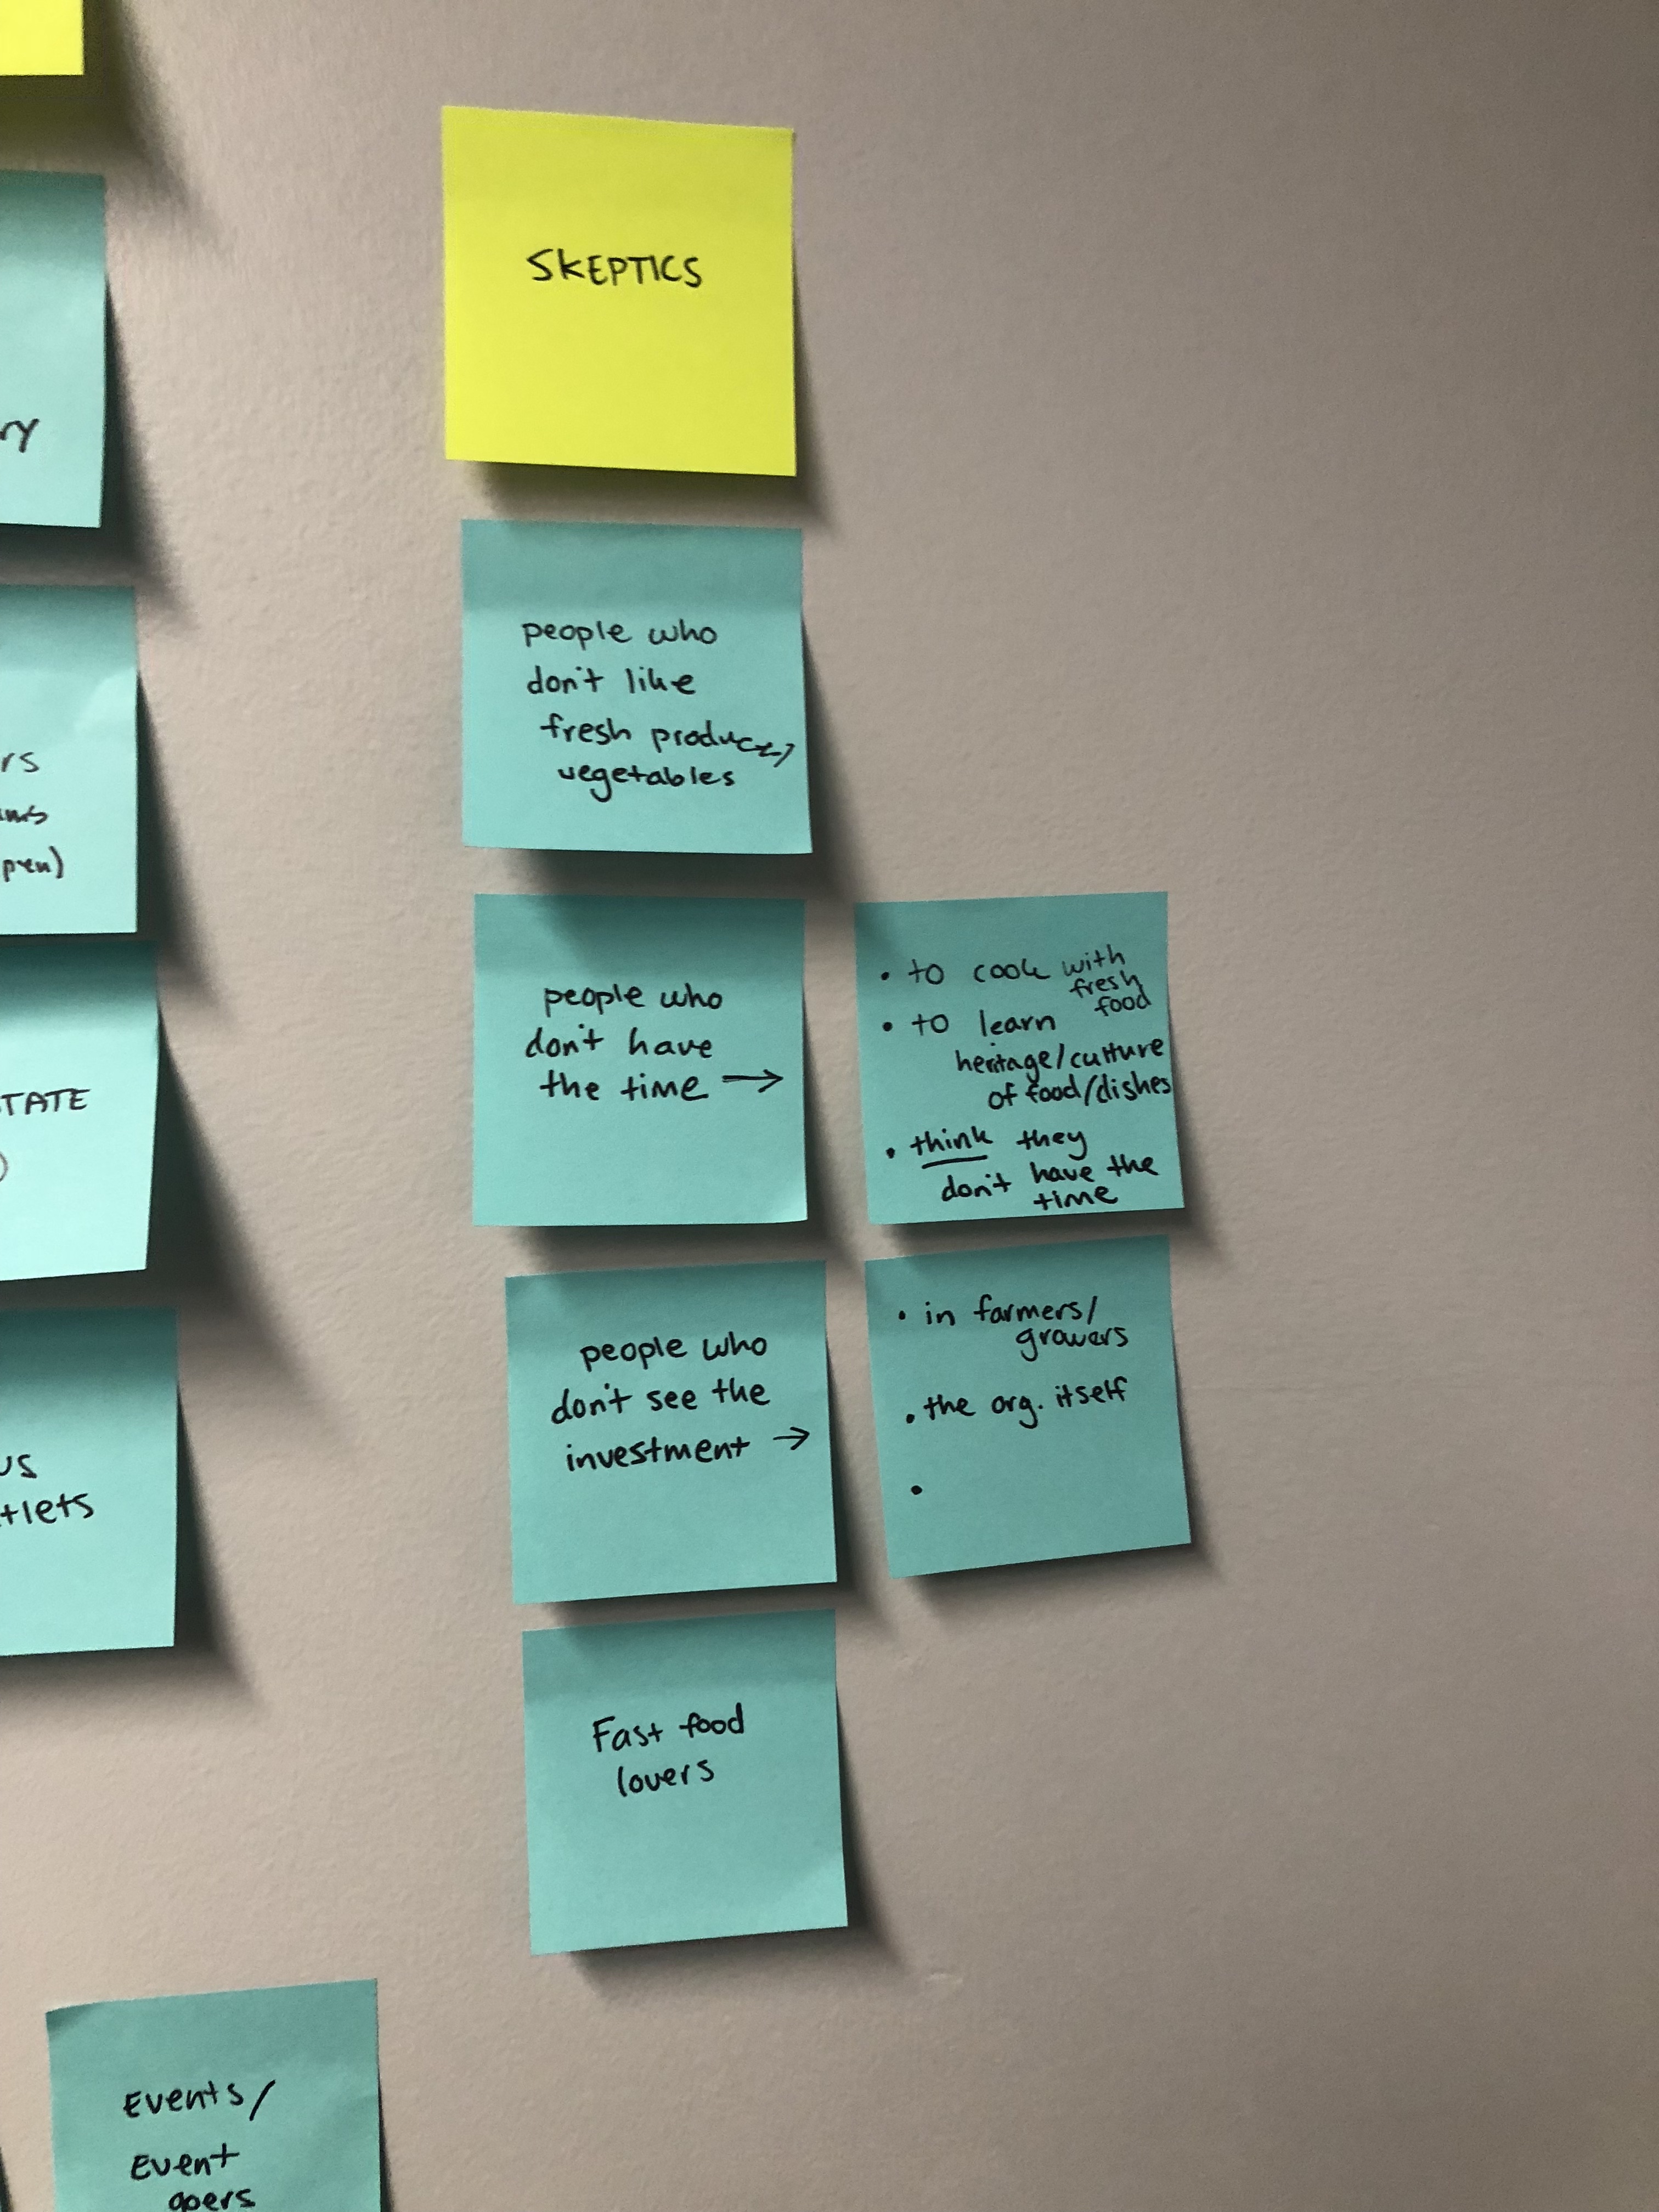 SKEPTICS
people who
don't like
fresh produce/
vegetables
people who
don't have
the time →
• to cook with
fresh
food
• to learn
heritage/culture
of food/dishes
• think they
don't have the
time
people who
don't see the
investment →
• in farmers/
growers
• the org. itself
•
Fast food
lovers
TATE
Events/
Event
goers